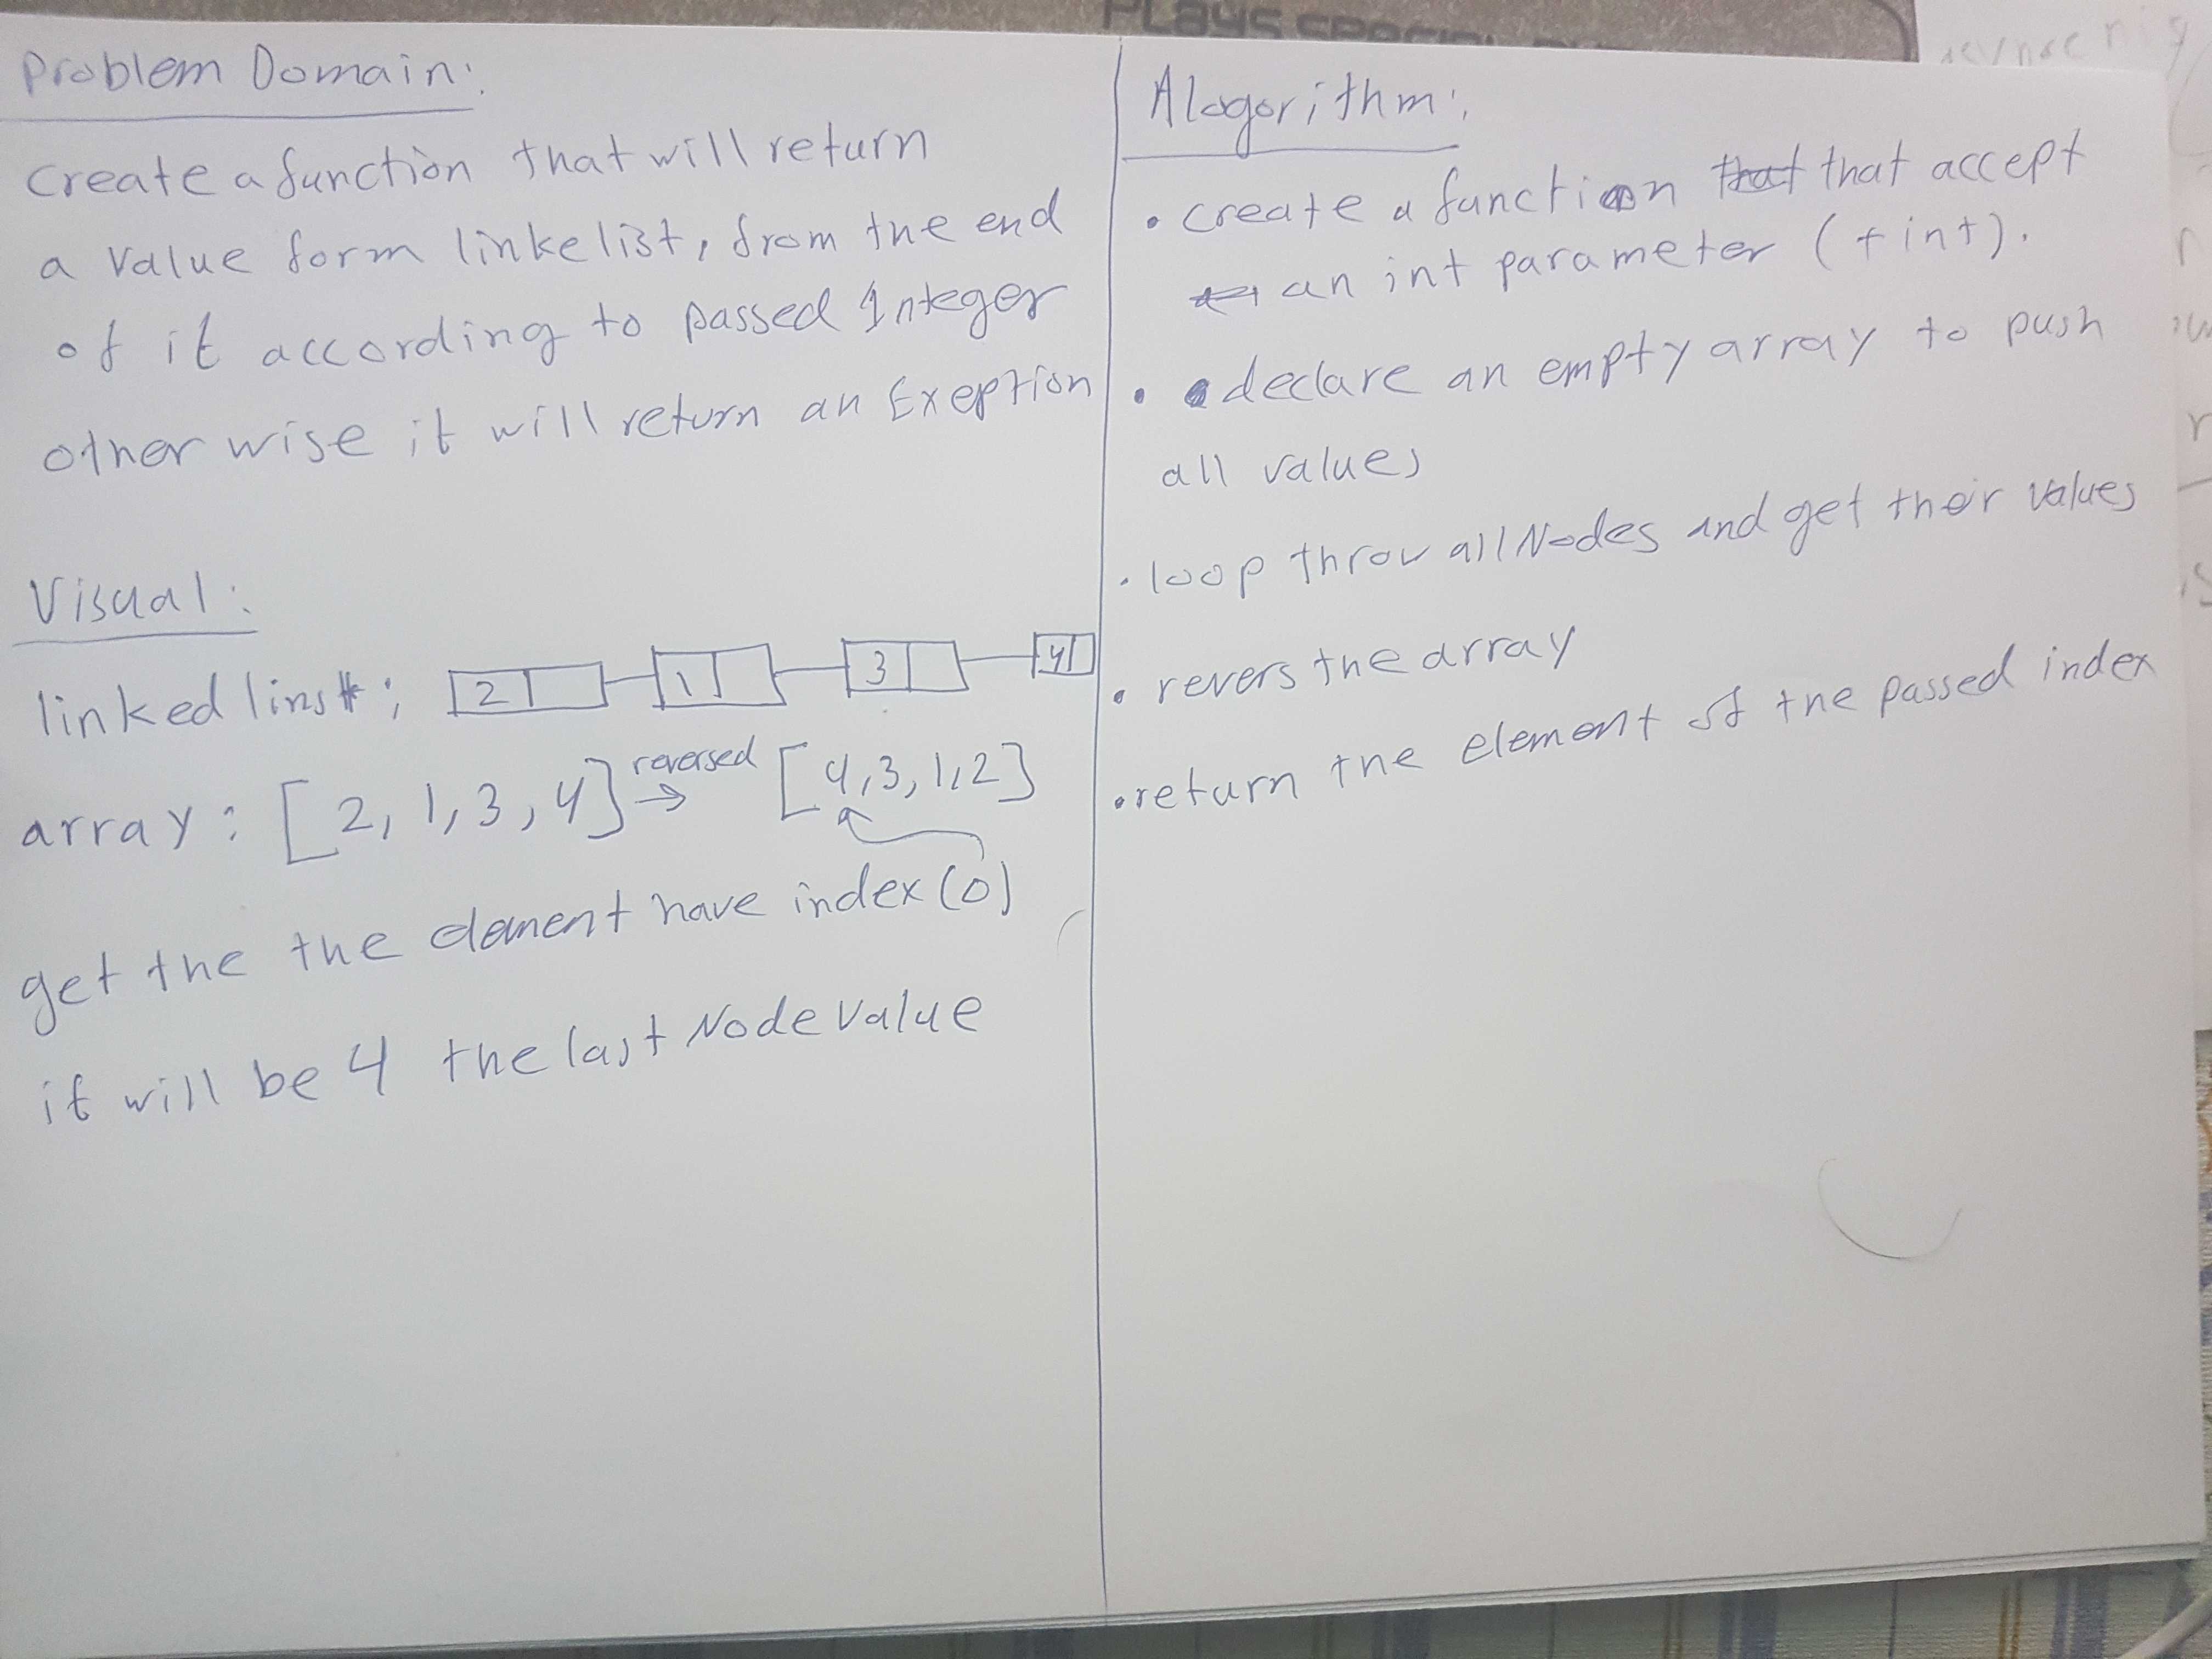 PLAYS SPECIAL
Problem Domain:
create a function that will return
a value form linkelist, from the end
of it according to passed Integer
other wise it will return an Exeption
Visual:
linked linst: 2 1 3 4
array: [2, 1, 3, 4] → reversed [4, 3, 1, 2]
get the the element have index (0)
it will be 4 the last Node value
Alogorithm:
• create a function that that accept
an int parameter (+ int).
• declare an empty array to push
all values
• loop throu all Nodes and get their values
• revers the array
• return the element of the passed index